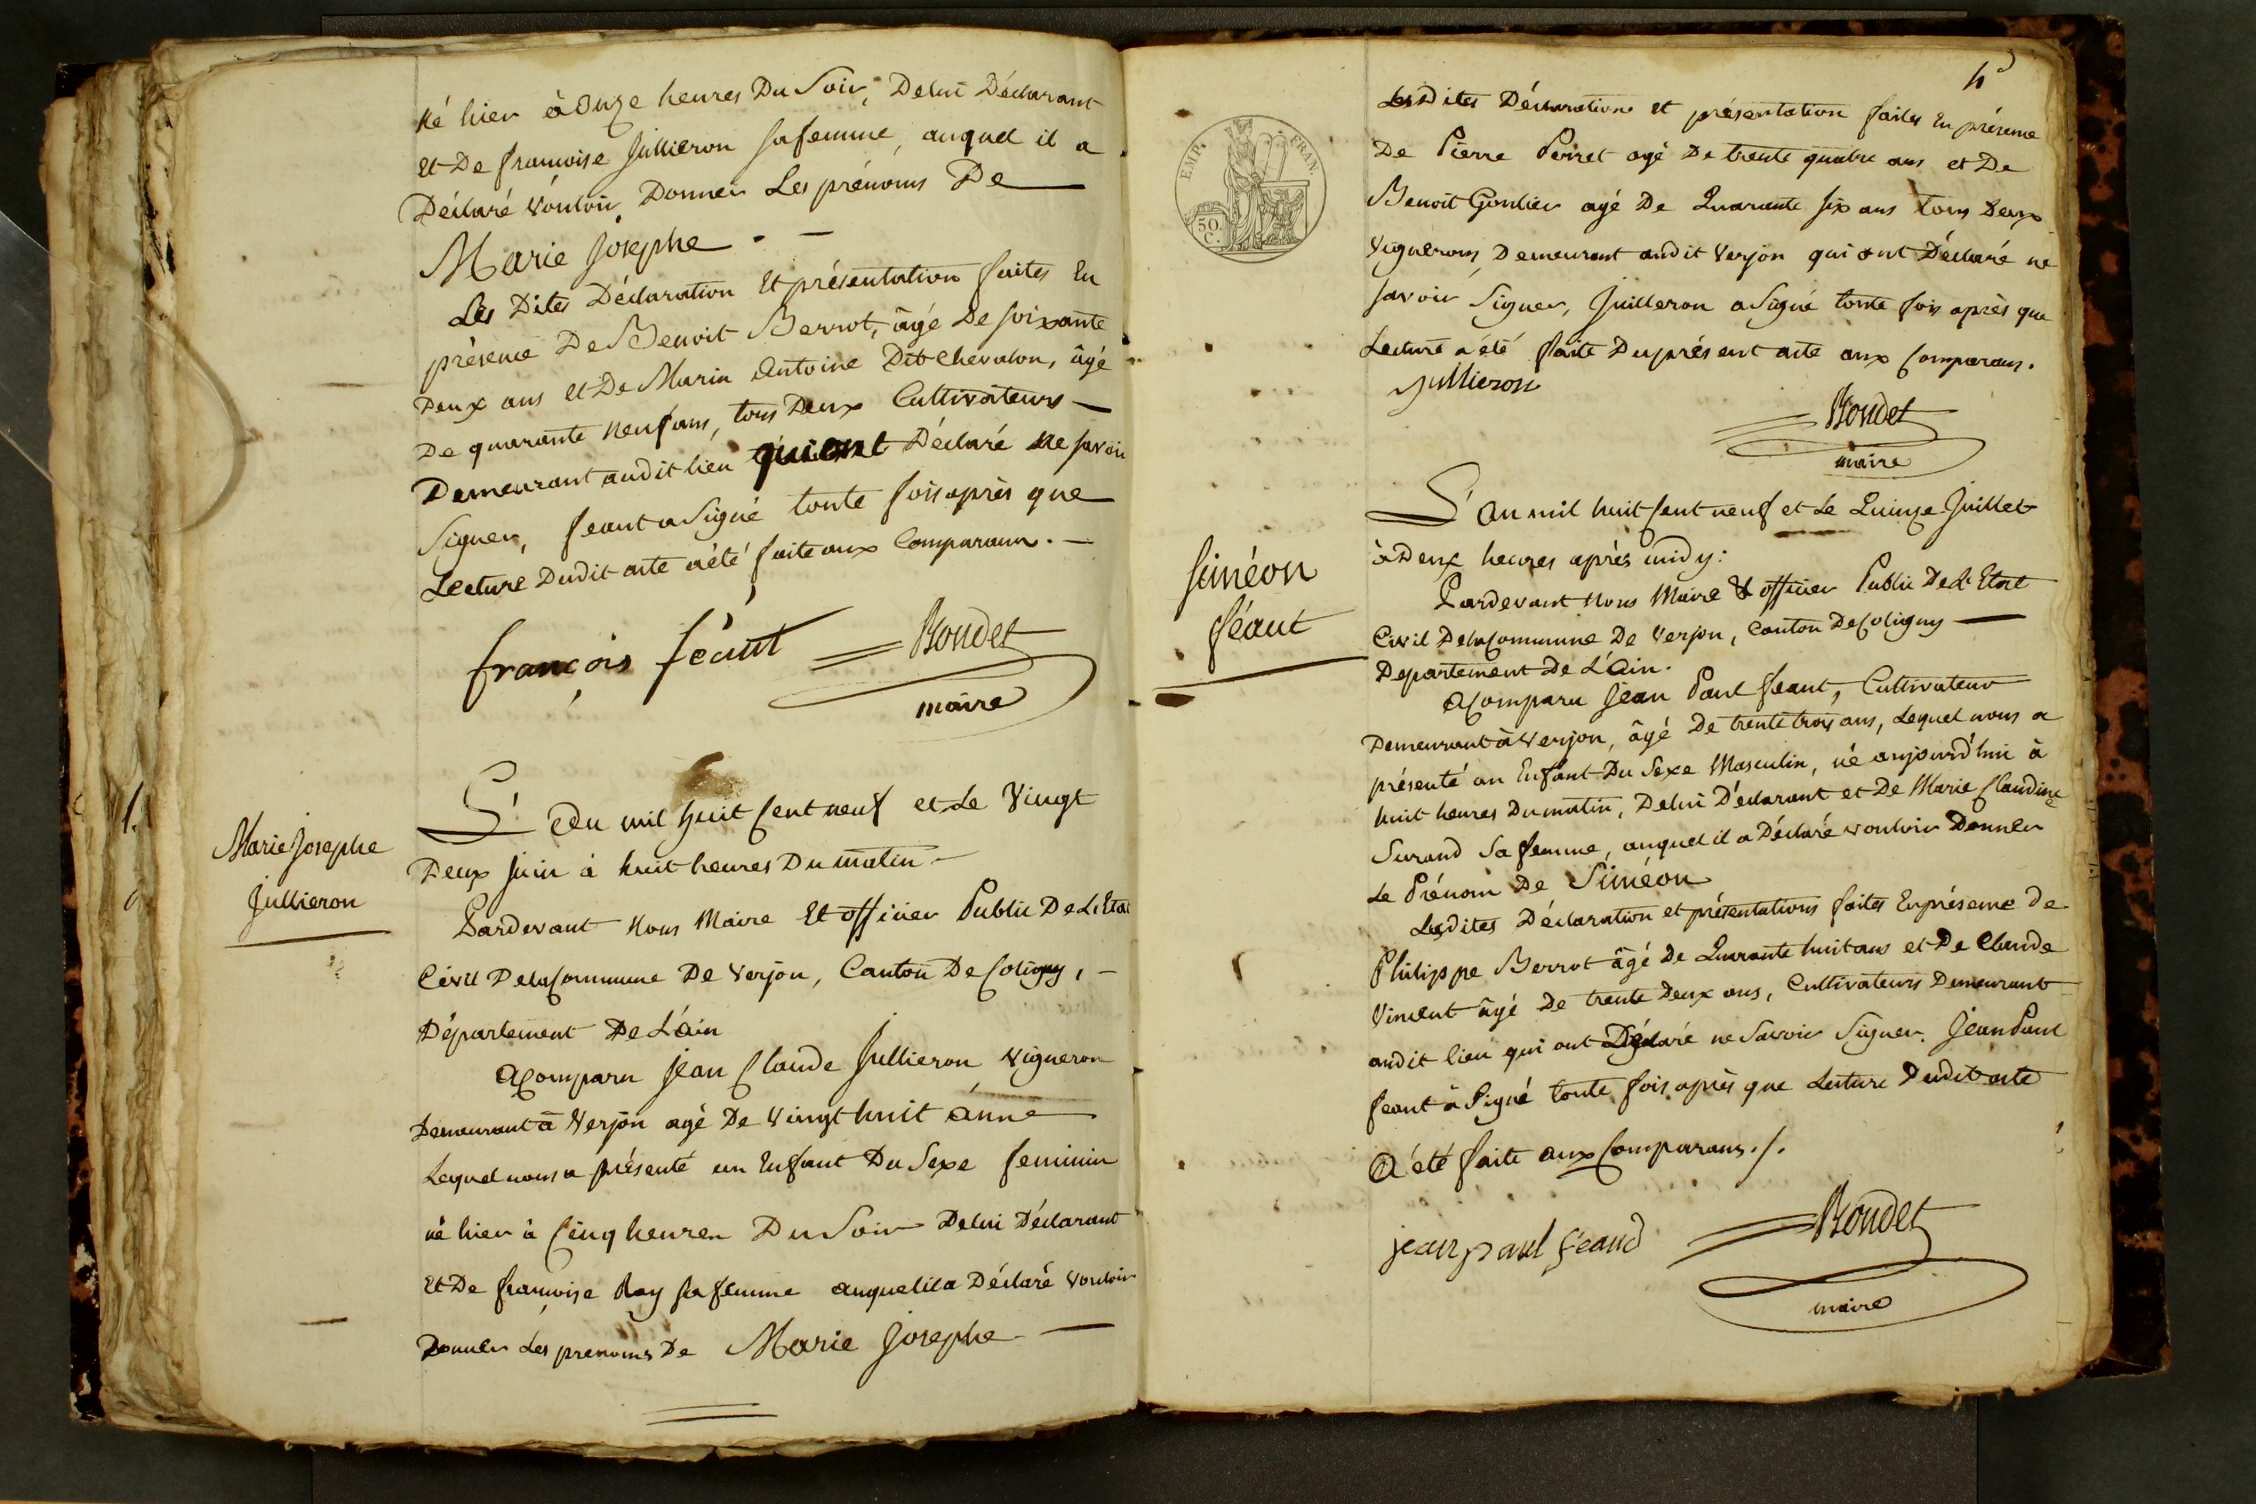 né hier à Onze heures Du Soir, Delui Déclarant
Et De françoise Jullieron sa femme, auquel il a
Déclaré Vouloir Donner Les prénoms De
Marie Josephe . —
Les Dites Déclaration Et présentation faites En
présence De Benoit Berrot, âgé De soixante
Deux ans et De Marin Antoine Dit Chevalon, âgé
De quarante neuf ans, tous Deux Cultivateurs —
Demeurant audit lieu qui ont Déclaré Ne savoir
Signer, feant a Signé toute fois après que
Lecture Dudit acte a été faite aux Comparans. —
françois féant
Bondet
maire
Marie Josephe
Jullieron
L'An mil huit Cent neuf et Le Vingt
Deux Juin à huit heures Du matin —
Pardevant Nous Maire Et officier Public De L'Etat
Civil De la Commune De Verjon, Canton De Coligny, —
Département De L'Ain
a Comparu Jean Claude Jullieron Vigneron
Demeurant à Verjon agé De Vingt huit anne
Lequel nous a présenté un Enfant Du Sexe feminin
né hier à Cinq heures Du Soir Delui Déclarant
Et De françoise Ray sa femme auquel il a Déclaré vouloir
Donner Les prenoms De Marie Josephe —
EMP. FRAN.
50.
C.
Lesdites Déclaration et présentation faites En présence
De Pierre Perret agé De trente quatre ans et De
Benoit Gontier agé De Quarante six ans tous Deux
Vignerons, Demeurant audit Verjon qui ont Déclaré ne
savoir Signer, Juilleron a Signé toute fois après que
Lecture a été faite Du présent acte aux Comparans.
Jullieron
Bondet
maire
Siméon
féant
L'an mil huit Cent neuf et Le Quinze Juillet
à Deux heures après midy:
Pardevant Nous Maire & officier Public De L'Etat
Civil De la Commune De Verjon, Canton De Coligny —
Departement De L'Ain.
a Comparu Jean Paul feant, Cultivateur
Demeurant à Verjon, âgé De trente trois ans, Lequel nous a
présenté un Enfant Du Sexe Masculin, né aujourd'hui à
huit heures Du matin, Delui Déclarant et De Marie Claudine
Surand Sa femme, auquel il a Déclaré vouloir Donner
Le Prénom De Siméon
Lesdites Déclaration et présentations faites En présence De
Philippe Berrot âgé De Quarante huit ans et De Claude
Vincent âgé De trente Deux ans, Cultivateurs Demeurant
audit lieu qui ont Déclaré ne Savoir Signer. Jean Paul
feant à Signé toute fois après que Lecture Dudit acte
A été faite aux Comparans ./.
jean paul feaud
Bondet
maire